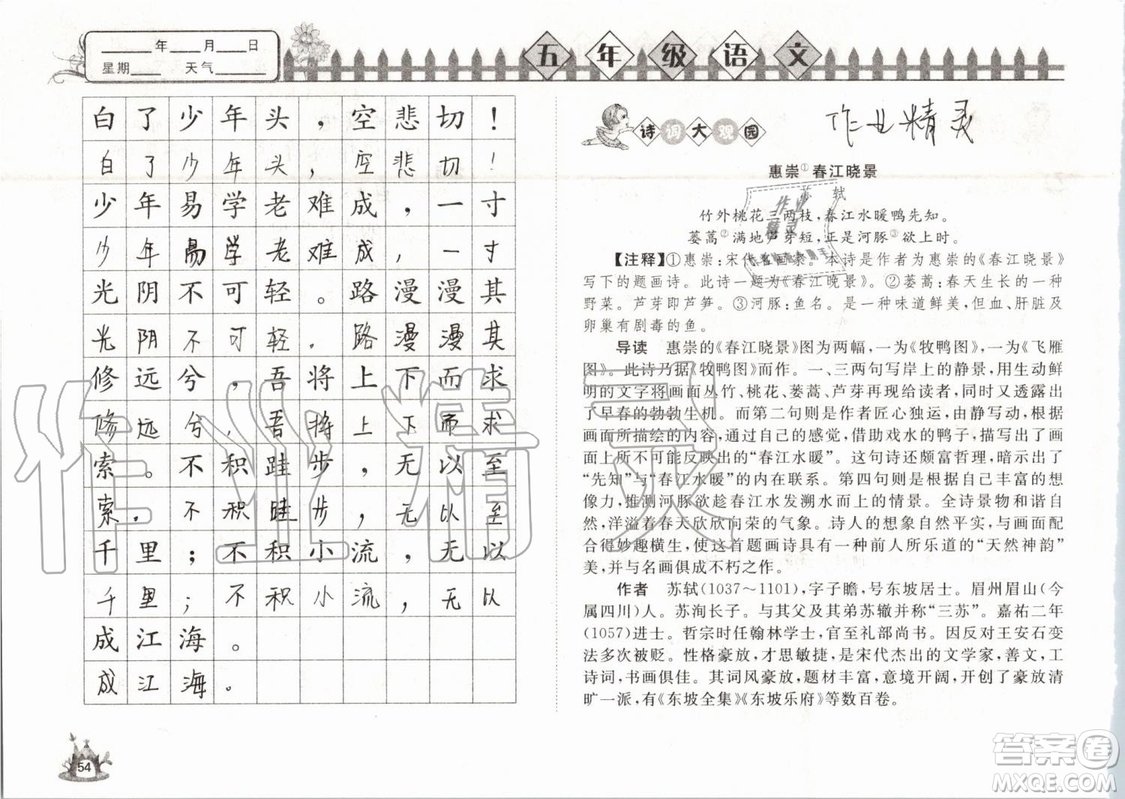 ____年____月____日
星期____ 天气____
五年级语文
白了少年头，空悲切！
白了少年头，空悲切！
少年易学老难成，一寸
少年易学老难成，一寸
光阴不可轻。路漫漫其
光阴不可轻。路漫漫其
修远兮，吾将上下而求
修远兮，吾将上下而求
索。不积跬步，无以至
索。不积跬步，无以至
千里；不积小流，无以
千里；不积小流，无以
成江海。
成江海。
54
诗词大观园
作业精灵
惠崇①春江晓景
苏 轼
竹外桃花三两枝，春江水暖鸭先知。
蒌蒿②满地芦芽短，正是河豚③欲上时。
【注释】①惠崇：宋代名画家。本诗是作者为惠崇的《春江晓景》
写下的题画诗。此诗一题为《春江晚景》。②蒌蒿：春天生长的一种
野菜。芦芽即芦笋。③河豚：鱼名。是一种味道鲜美，但血、肝脏及
卵巢有剧毒的鱼。
导读 惠崇的《春江晓景》图为两幅，一为《牧鸭图》，一为《飞雁
图》。此诗乃据《牧鸭图》而作。一、三两句写岸上的静景，用生动鲜
明的文字将画面上丛竹、桃花、蒌蒿、芦芽再现给读者，同时又透露出
了早春的勃勃生机。而第二句则是作者匠心独运，由静写动，根据
画面所描绘的内容，通过自己的感觉，借助戏水的鸭子，描写出了画
面上所不可能反映出的“春江水暖”。这句诗颇富哲理，暗示出
“先知”与“春江水暖”的内在联系。第四句则是诗人根据画面的想
像力，推测河豚欲趁春江水发溯水而上的情景。全诗景物和谐自
然，洋溢着春天欣欣向荣的气象。诗人的想象自然平实，与画面配
合得妙趣横生，使这首题画诗具有一种前人所乐道的“天然神韵”
美，并与名画俱成不朽之作。
作者 苏轼(1037～1101)，字子瞻，号东坡居士。眉州眉山(今
属四川)人。苏洵长子。与其父及其弟苏辙并称“三苏”。嘉祐二年
(1057)进士。哲宗时任翰林学士，官至礼部尚书。因反对王安石变
法多次被贬。性格豪放，才思敏捷，是宋代杰出的文学家，善文，工
诗词，书画俱佳。其词风豪放，题材丰富，意境开阔，开创了豪放清
旷一派，有《东坡全集》《东坡乐府》等数百卷。
作业精灵
答案卷
MXQE.COM